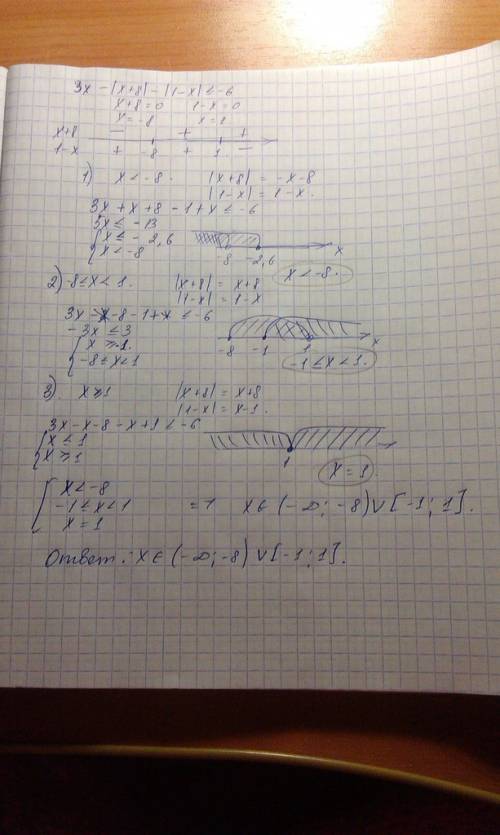 3x - |x+8| - |1-x| ≤ -6
x+8=0 1-x=0
x=-8 x=1
x+8 - + +
1-x + -8 + 1 -
1) x < -8. |x+8| = -x-8
|1-x| = 1-x.
3x + x + 8 - 1 + x ≤ -6
5x ≤ -13
x ≤ -2,6
x < -8
-8 -2,6 x
x < -8.
2) -8 ≤ x < 1. |x+8| = x+8
|1-x| = 1-x
3x - x - 8 - 1 + x ≤ -6
- 3x ≤ 3
x ≥ -1.
-8 ≤ x < 1
-8 -1 1 x
-1 ≤ x < 1.
3) x ≥ 1 |x+8| = x+8
|1-x| = x-1.
3x - x - 8 - x + 1 ≤ -6
x ≤ 1
x ≥ 1
1
x = 1
x < -8
-1 ≤ x < 1
x = 1
=> x ∈ (-∞; -8) ∨ [-1; 1].
Ответ: x ∈ (-∞; -8) ∨ [-1; 1].